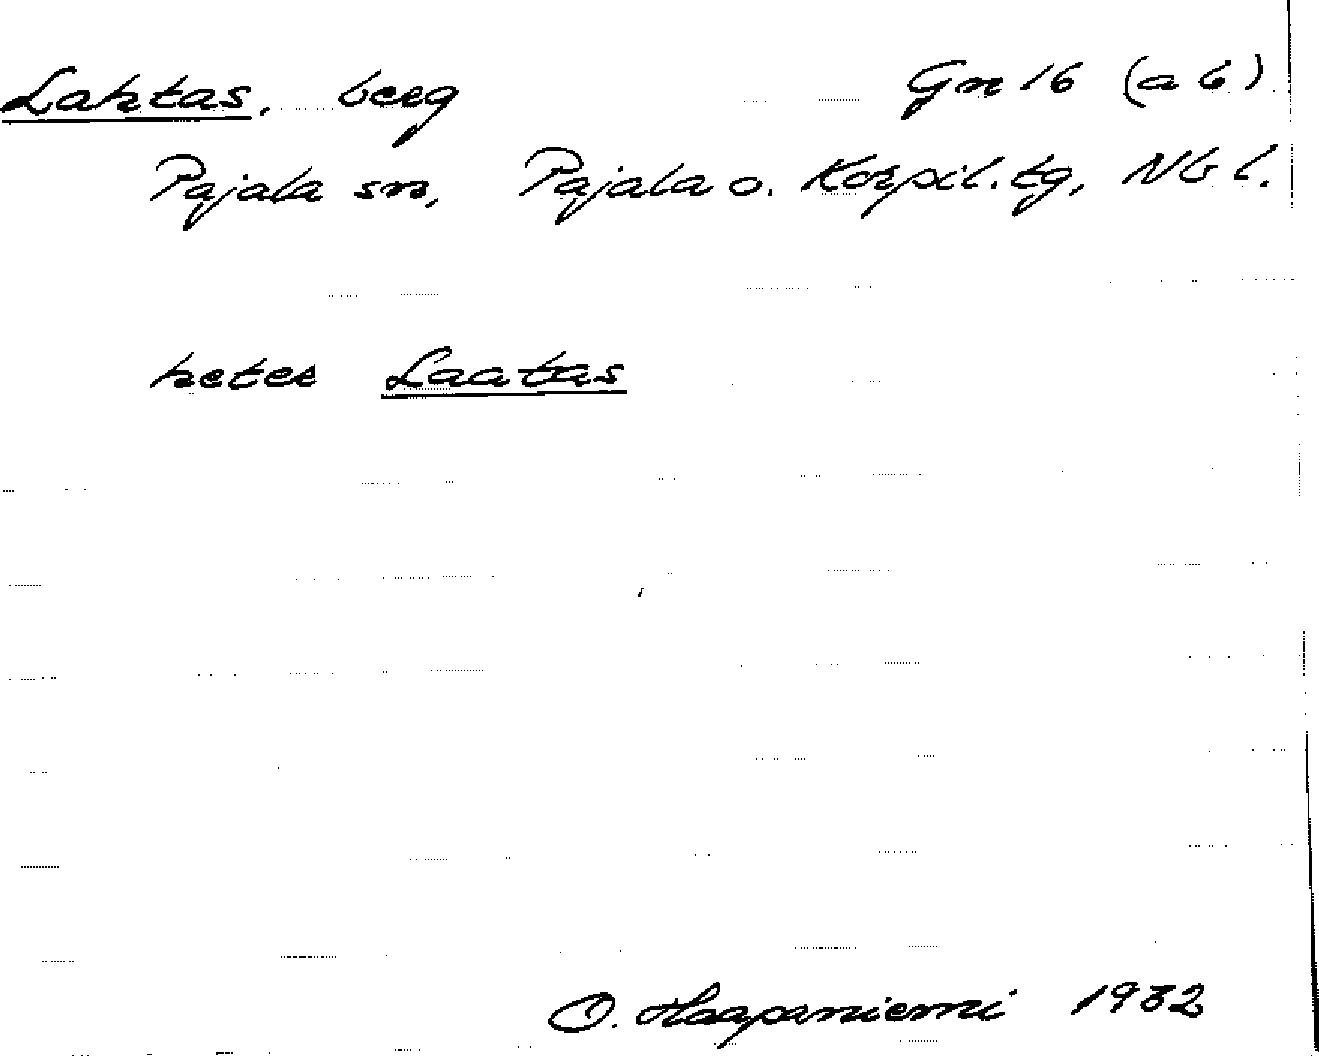 Lahtas, berg Gn 16 (a b)
Pajala sn, Pajala o. Korpil. tg, Nb l.
heter Laatas
O. Haapaniemi 1932